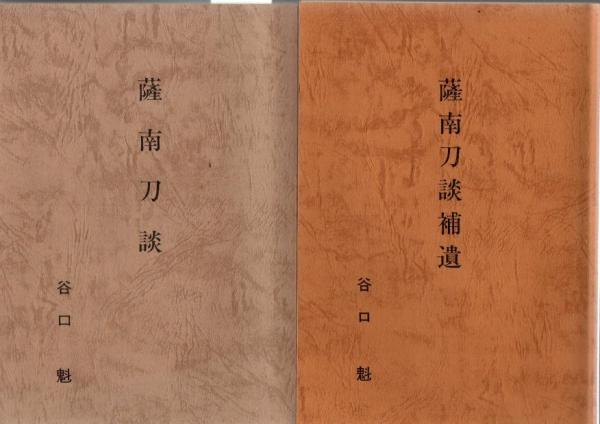 薩南刀談
谷口魁
薩南刀談補遺
谷口魁